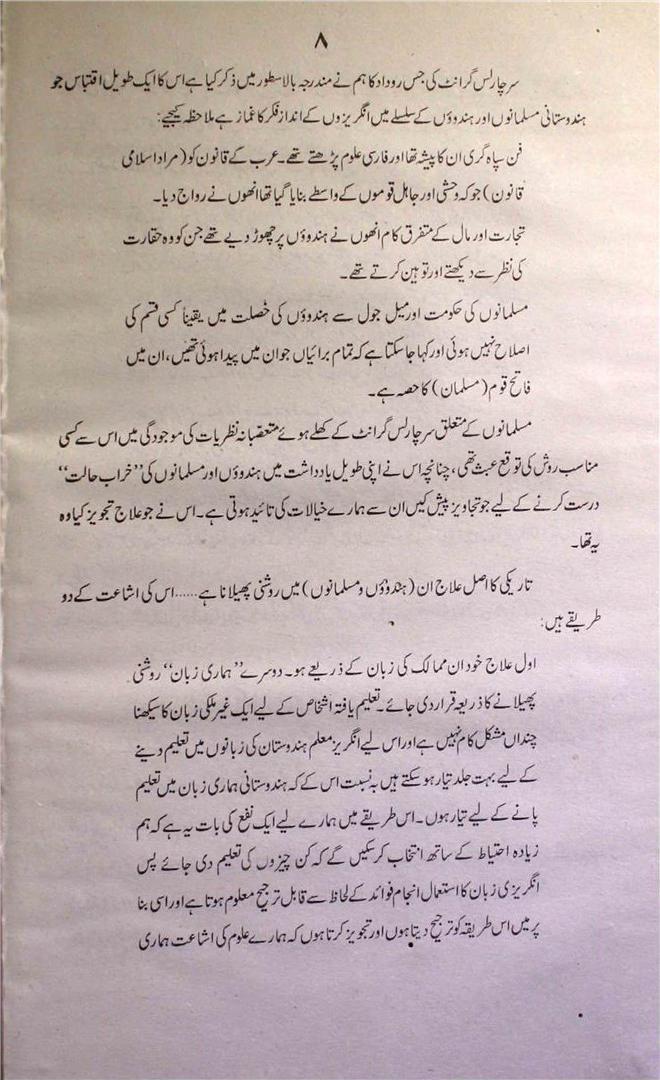 ۸
سر چارلس گرانٹ کی جس روداد کا ہم نے مندرجہ بالا سطور میں ذکر کیا ہے اس کا ایک طویل اقتباس جو
ہندوستانی مسلمانوں اور ہندوؤں کے سلسلے میں انگریزوں کے انداز فکر کا غماز ہے ملاحظہ کیجیے:
فن سپاہ گری ان کا پیشہ تھا اور فارسی علوم پڑھتے تھے۔ عرب کے قانون کو (مراد اسلامی
قانون) جو کہ وحشی اور جاہل قوموں کے واسطے بنایا گیا تھا انھوں نے رواج دیا۔
تجارت اور مال کے متفرق کام انھوں نے ہندوؤں پر چھوڑ دیے تھے جن کو وہ حقارت
کی نظر سے دیکھتے اور توہین کرتے تھے۔
مسلمانوں کی حکومت اور میل جول سے ہندوؤں کی خصلت میں یقیناً کسی قسم کی
اصلاح نہیں ہوئی اور کہا جا سکتا ہے کہ تمام برائیاں جو ان میں پیدا ہوئی تھیں، ان میں
فاتح قوم (مسلمان) کا حصہ ہے۔
مسلمانوں کے متعلق سر چارلس گرانٹ کے کھلے ہوئے متعصبانہ نظریات کی موجودگی میں اس سے کسی
مناسب روش کی توقع عبث تھی، چنانچہ اس نے اپنی طویل یادداشت میں ہندوؤں اور مسلمانوں کی ”خراب حالت“
درست کرنے کے لیے جو تجاویز پیش کیں ان سے ہمارے خیالات کی تائید ہوتی ہے۔ اس نے جو علاج تجویز کیا وہ
یہ تھا۔
تاریکی کا اصل علاج ان (ہندوؤں و مسلمانوں) میں روشنی پھیلانا ہے......اس کی اشاعت کے دو
طریقے ہیں:
اول علاج خود ان ممالک کی زبان کے ذریعے ہو۔ دوسرے ”ہماری زبان“ روشنی
پھیلانے کا ذریعہ قرار دی جائے۔ تعلیم یافتہ اشخاص کے لیے ایک غیر ملکی زبان کا سیکھنا
چنداں مشکل کام نہیں ہے اور اس لیے انگریز معلم ہندوستان کی زبانوں میں تعلیم دینے
کے لیے بہت جلد تیار ہو سکتے ہیں بہ نسبت اس کے کہ ہندوستانی ہماری زبان میں تعلیم
پانے کے لیے تیار ہوں۔ اس طریقے میں ہمارے لیے ایک نفع کی بات یہ ہے کہ ہم
زیادہ احتیاط کے ساتھ انتخاب کر سکیں گے کہ کن چیزوں کی تعلیم دی جائے پس
انگریزی زبان کا استعمال انجام فوائد کے لحاظ سے قابل ترجیح معلوم ہوتا ہے اور اسی بنا
پر میں اس طریقہ کو ترجیح دیتا ہوں اور تجویز کرتا ہوں کہ ہمارے علوم کی اشاعت ہماری